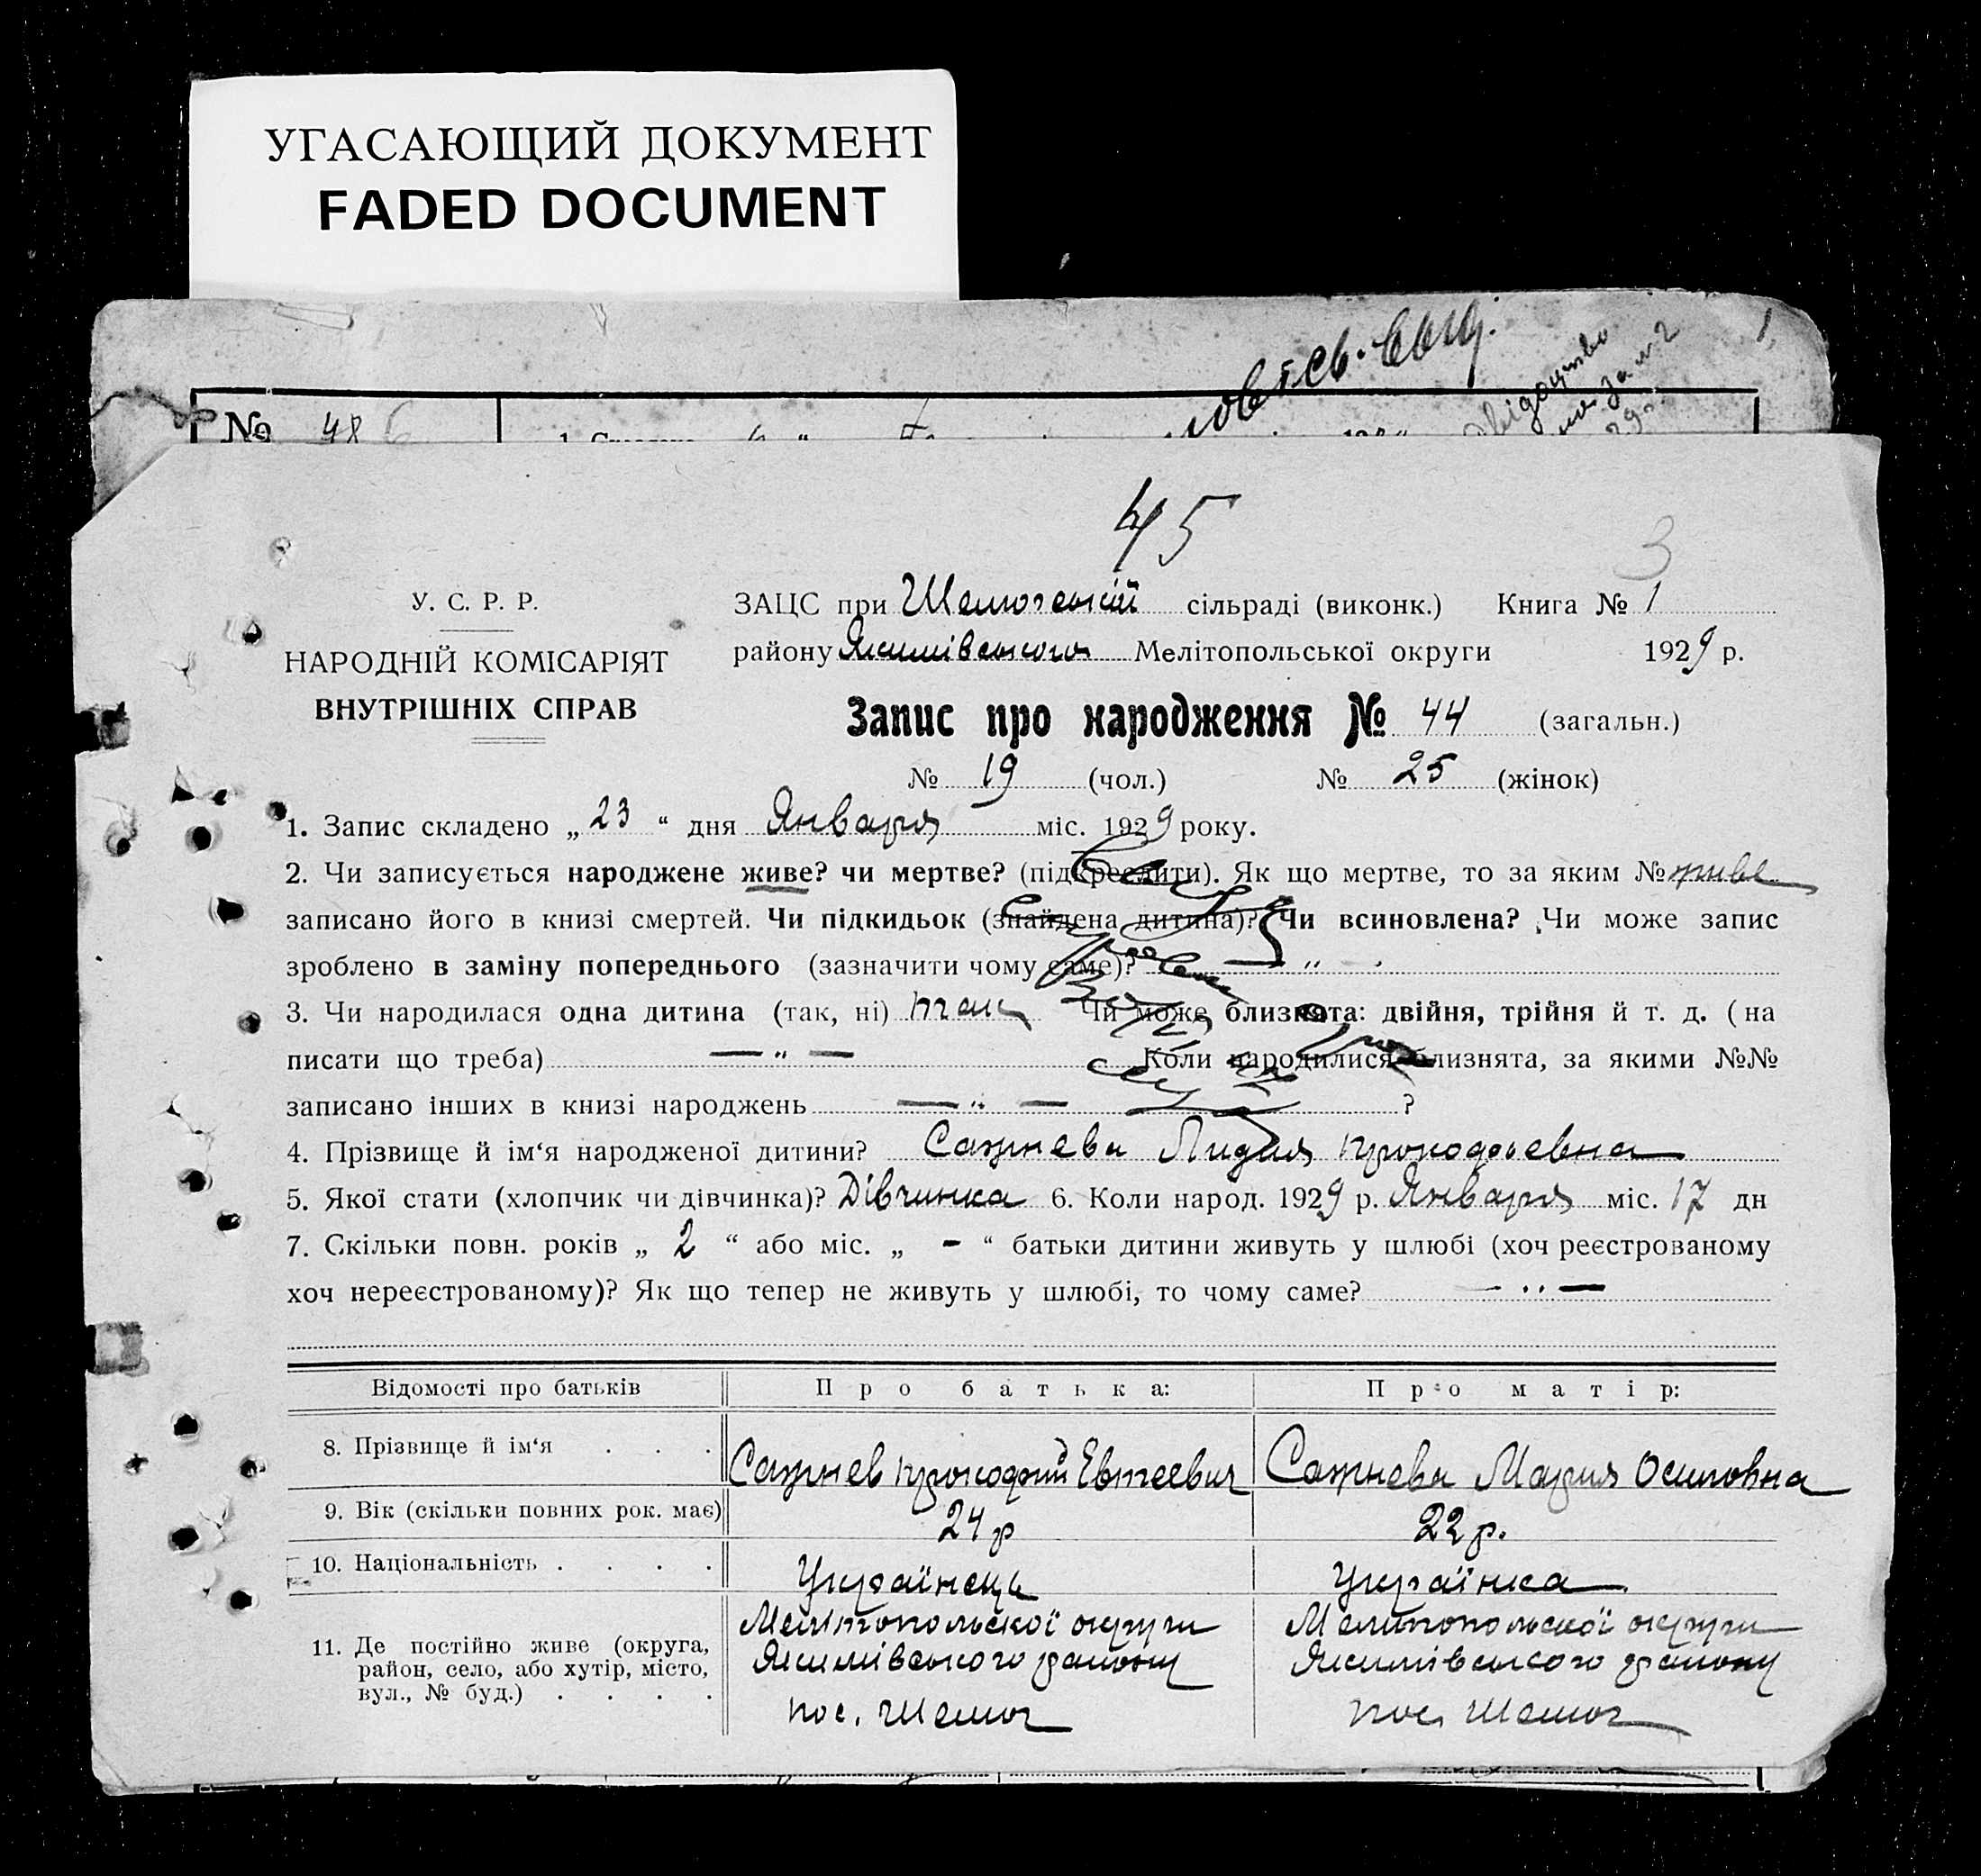 УГАСАЮЩИЙ ДОКУМЕНТ
FADED DOCUMENT
№ 486
1.
45
3
У. С. Р. Р.
НАРОДНІЙ КОМІСАРІЯТ
ВНУТРІШНІХ СПРАВ
ЗАЦС при сільраді (виконк.) Книга № 1
району Якимівського Мелітопольської округи 1929 р.
Запис про народження № 44 (загальн.)
№ 19 (чол.) № 25 (жінок)
1. Запис складено „ 23 “ дня Января міс. 1929 року.
2. Чи записується народжене живе? чи мертве? (підкреслити). Як що мертве, то за яким № живе
записано його в книзі смертей. Чи підкидьок (знайдена дитина)? Чи всиновлена? Чи може запис
зроблено в заміну попереднього (зазначити чому саме)? — „ —
3. Чи народилася одна дитина (так, ні) так Чи може близнята: двійня, трійня й т. д. (на
писати що треба) — „ — Коли народилися близнята, за якими №№
записано інших в книзі народжень — „ — ?
4. Прізвище й ім‘я народженої дитини? Сажнева Лидия Прокофьевна
5. Якої стати (хлопчик чи дівчинка)? Дівчинка 6. Коли народ. 1929 р. Января міс. 17 дн
7. Скільки повн. років „ 2 “ або міс. „ - “ батьки дитини живуть у шлюбі (хоч реєстрованому
хоч нереєстрованому)? Як що тепер не живуть у шлюбі, то чому саме? — „ —
Відомості про батьків Про батька: Про матір:
8. Прізвище й ім‘я . . . Сажнев Прокофий Евтеевич Сажнева Мария Осиповна
9. Вік (скільки повних рок. має) 24 р 22 р.
10. Національність . . . . Українець Українка
11. Де постійно живе (округа, район, село, або хутір, місто, вул., № буд.) . . . .
Мелітопольскої округи Мелитопольскої округи
Якимівського району Якимівського району
пос. пос.